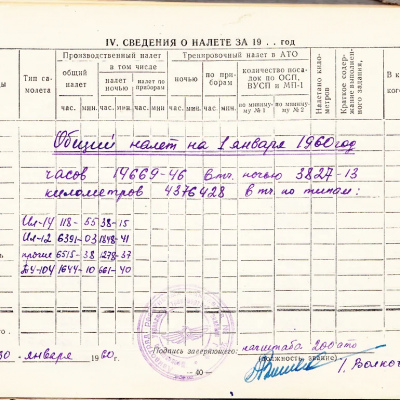 IV. СВЕДЕНИЯ О НАЛЕТЕ ЗА 19 . . год
Производственный налет
Тренировочный налет в АТО
Тип са-
молета
общий
налет
в том числе
налет
ночью
налет по
приборам
ночью
по при-
борам
количество поса-
док по ОСП,
ВУСП и МП-1
по миниму-
му № 1
по миниму-
му № 2
Налетано кило-
метров
Краткое содер-
жание выполнен-
ного задания,
В к
кого
час. мин. час. мин. час. мин. час. мин. час. мин.
Общий налет на 1 января 1960 год
часов 14669-46 в т.ч. ночью 3827-13
километров 4376428 в т.ч. по типам:
Ил-14 118-55 38-15
Ил-12 6391-03 1848-41
прочие 6515-38 1278-37
ТУ-104 1644-10 661-40
30 января 1960 г.
Подпись заверяющего:
начштаба 200 ато
(должность, звание)
— 40 —